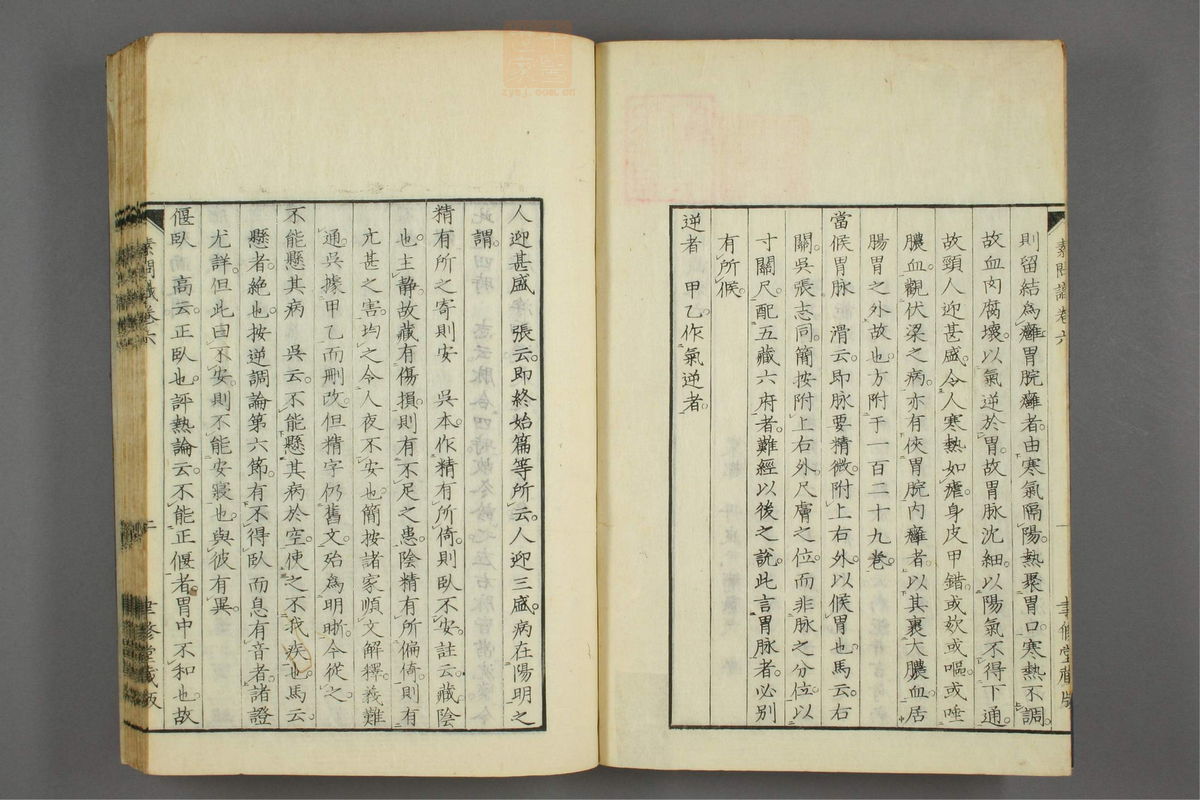 則留結為癰胃脘癰者。由寒氣隔陽。熱聚胃口。寒熱不調。
故血肉腐壞。以氣逆於胃。故胃脈沈細。以陽氣不得下通。
故頸人迎甚盛。令人寒熱如瘧。身皮甲錯。或欬或嘔。或唾
膿血。觀伏梁之病。亦有俠胃脘內癰者。以其裹大膿血。居
腸胃之外故也。方附于一百二十九卷。
當候胃脉 滑云。即脉要精微。附上右外以候胃也。馬云。右
關。吳張志同。簡按附上右外。尺膚之位。而非脉之分位。以
寸關尺。配五藏六府者。難經以後之說。此言胃脉者。必別
有所候。
逆者 甲乙。作氣逆者。
素問識卷六
聿修堂藏版
人迎甚盛 張云。即終始篇等所云。人迎三盛。病在陽明之
此謂。
精有所之寄則安 吳本。作精有所倚。則臥不安。註云。藏陰
也。主静。故藏有傷損。則有不足之患。陰精有所偏倚。則有
亢甚之害。均之令人夜不安也。簡按諸家順文解釋。義難
通。吳據甲乙而刪改。但精字仍舊。文殆為明晰。今從之。
不能懸其病 吳云。不能懸其病於空。使之不我疾也。馬云。
懸者。絶也。按逆調論第六節。有不得臥而息有音者。諸證
尤詳。但此曰不安。則不能安寢也。與彼有異。
偃臥 高云。正臥也。評熱論云。不能正偃者。胃中不和也。故
素問識卷六
聿修堂藏版
zysj.com.cn